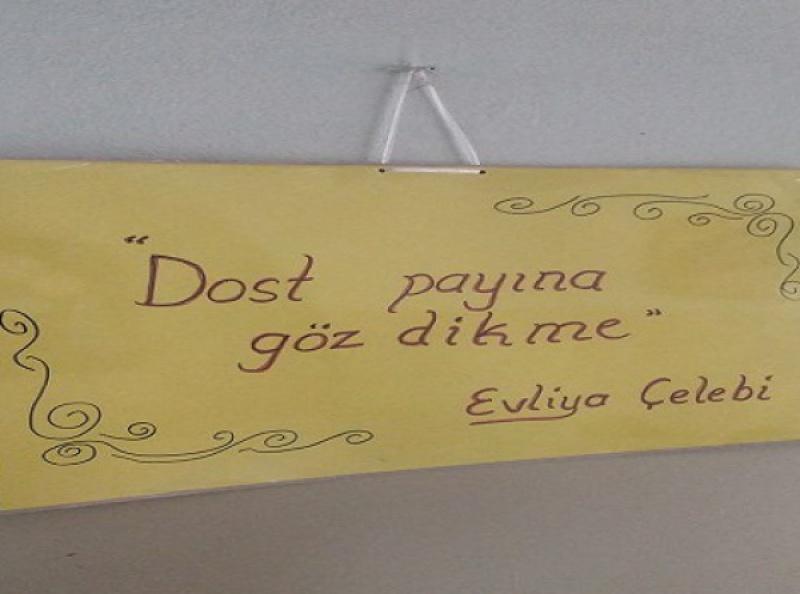 “Dost payına
göz dikme”
Evliya Çelebi